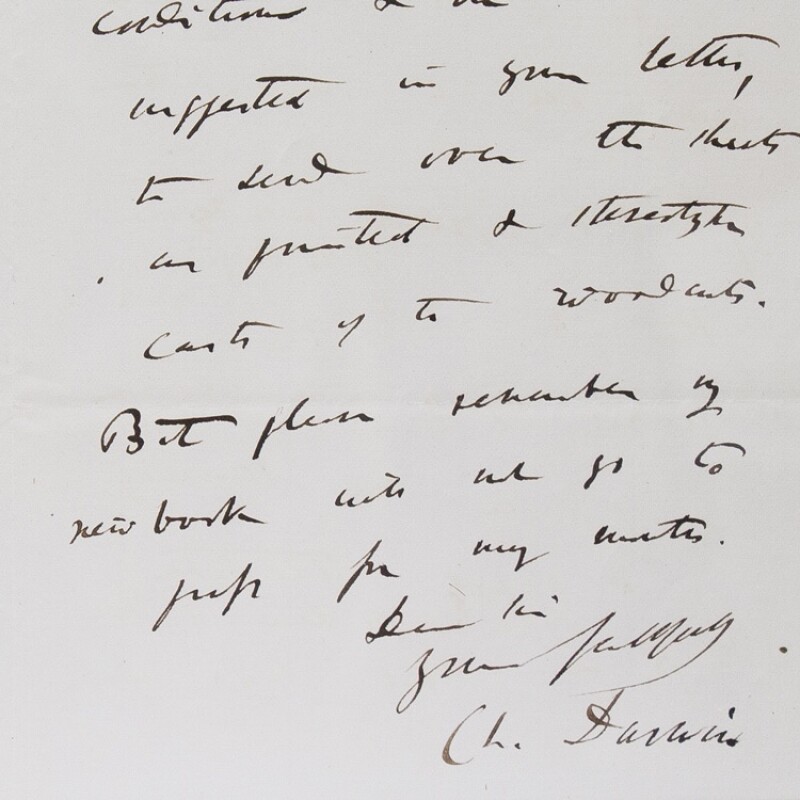 conditions & on
suggested in your letter,
to send over the sheets
as printed & stereotype
casts of the woodcuts.
But please remember my
new book will not go to
press for many months.
Dear Sir
yours faithfully
Ch. Darwin